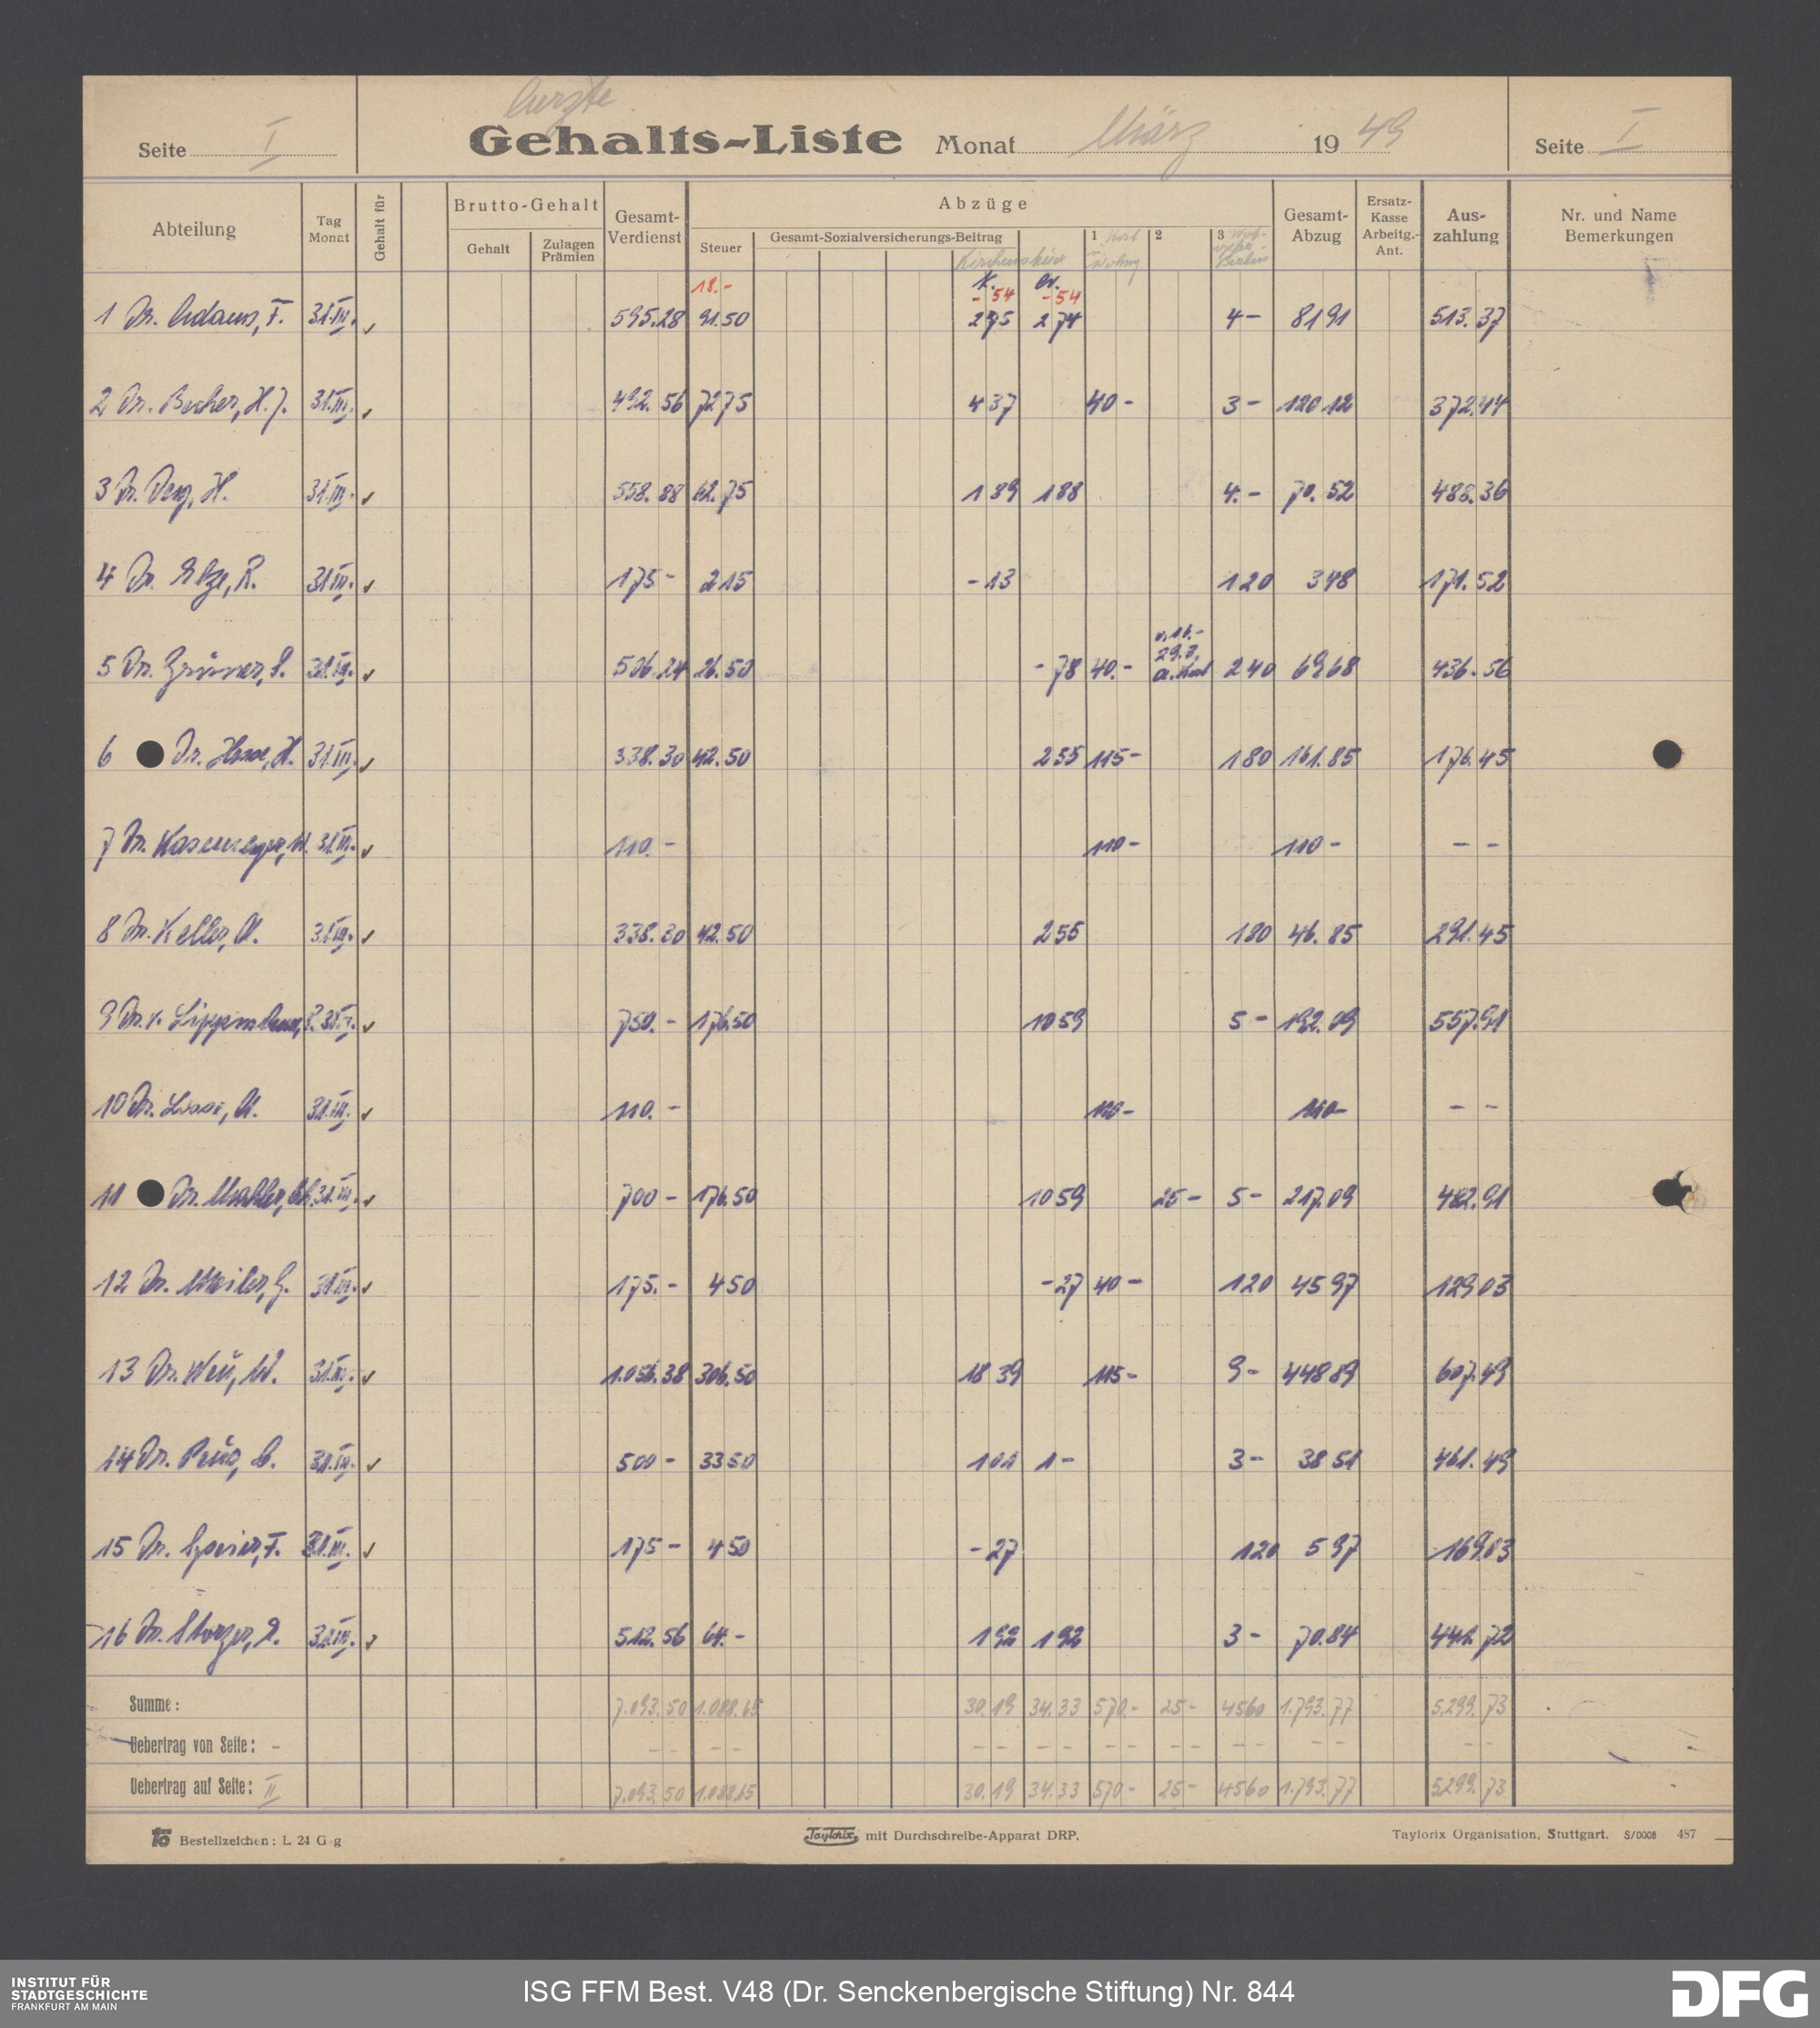 Aerzte
Seite I Gehalts-Liste Monat März 1949 Seite I
Abteilung Tag Monat Gehalt für Brutto-Gehalt Gesamt-Verdienst Abzüge Gesamt-Abzug Ersatz-Kasse Arbeitg.-Ant. Aus-zahlung Nr. und Name Bemerkungen
Gehalt Zulagen Prämien Steuer Gesamt-Sozialversicherungs-Beitrag 1 Kost 2 3
Kirchensteuer Berlin
18.- K. ev.
- 54 - 54
1 Dr. Adams, F. 31.III. ✓ 595.28 91.50 2 75 2 74 4 - 81 91 513.37
2 Dr. Becher, H.J. 31.III. ✓ 492.56 72 75 4 37 40 - 3 - 120 12 372.44
3 Dr. H. 31.III. ✓ 558.88 62.75 1 89 1 88 4.- 70.52 488.36
4 Dr. R. 31.III. ✓ 175 - 2 15 - 13 1 20 3 48 171.52
5 Dr. 31.III. ✓ 506.24 26.50 - 78 40.- 2 40 69 68 436.56
6 Dr. H. 31.III. ✓ 338.30 42.50 2 55 115 - 1 80 161.85 176.45
7 Dr. 31.III. ✓ 110.- 110 - 110 - - -
8 Dr. Keller, A. 31.III. ✓ 338.30 42.50 2 55 1 80 46.85 291.45
9 Dr. v. Lippmann, 31.III. ✓ 750.- 176.50 10 59 5 - 192.09 557.91
10 Dr. A. 31.III. ✓ 110.- 110 - 110 - - -
11 Dr. 31.III. ✓ 700 - 176.50 10 59 25 - 5 - 217.09 482.91
12 Dr. G. 31.III. ✓ 175.- 4 50 - 27 40 - 1 20 45 97 129 03
13 Dr. W. 31.III. ✓ 1.056.38 306.50 18 39 115 - 9 - 448 89 607.49
14 Dr. 31.III. ✓ 500 - 33 50 1 01 1 - 3 - 38 51 461.49
15 Dr. F. 31.III. ✓ 175 - 4 50 - 27 1 20 5 97 169.03
16 Dr. 31.III. ✓ 512.56 64.- 1 92 1 92 3 - 70.84 441.72
Summe: 7.093.50 1.088.65 30.19 34.33 570.- 25 - 45 60 1.793.77 5.299.73
Uebertrag von Seite: - - - - - - - - - - - - - - - - - - -
Uebertrag auf Seite: II 7.093.50 1.088.65 30.19 34.33 570 - 25 - 45 60 1.793.77 5.299.73
Bestellzeichen: L 24 G-g Taylorix mit Durchschreibe-Apparat DRP. Taylorix Organisation, Stuttgart. S/0006 487
INSTITUT FÜR
STADTGESCHICHTE
FRANKFURT AM MAIN
ISG FFM Best. V48 (Dr. Senckenbergische Stiftung) Nr. 844
DFG